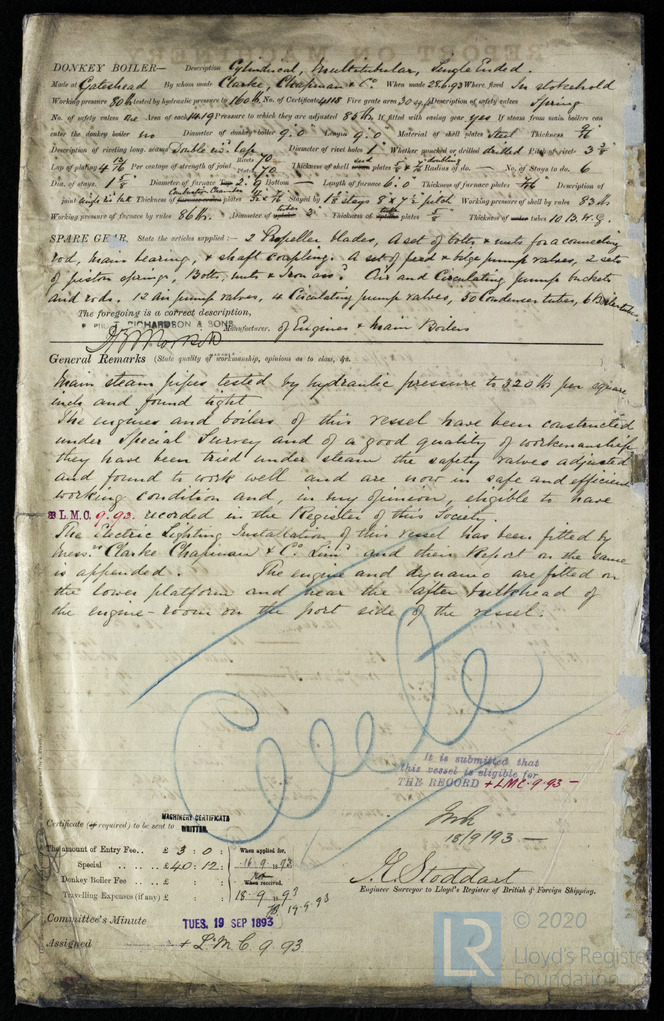 DONKEY BOILER— Description Cylindrical, Multitubular, Single Ended.
Made at Gateshead By whom made Clarke, Chapman & Co. When made 28.6.93 Where fixed In stokehold
Working pressure 80 lb tested by hydraulic pressure to 160 lb No. of Certificate 4118 Fire grate area 30 sq ft Description of safety valves Spring
No. of safety valves Area of each 14.19 Pressure to which they are adjusted 85 lb If fitted with easing gear yes If steam from main boilers can
enter the donkey boiler no Diameter of donkey boiler 9.0 Length 9.0 Material of shell plates Steel Thickness
Description of riveting long. seams Double riv. lap Diameter of rivet holes 1" Whether punched or drilled drilled Pitch of rivets
Lap of plating Per centage of strength of joint Rivets 70 Plates 70 Thickness of shell end plates doubling Radius of do. — No. of Stays to do. 6
Dia. of stays 1 5/8 Diameter of furnace 2.9 Bottom — Length of furnace 6.0 Thickness of furnace plates Description of
joint Combustion Chamber Thickness of plates Stayed by stays 8 x 7 1/2 pitch Working pressure of shell by rules 83 lb
Working pressure of furnace by rules 86 lb. Diameter of tubes 3 Thickness of plates Thickness of tubes 10 B.W.G.
SPARE GEAR. State the articles supplied:— 2 Propeller blades, A set of bolts & nuts for a connecting
rod, main bearing, & shaft coupling. A set of feed & bilge pump valves, 2 sets
of piston springs, Bolts, nuts & Iron assd. Air and Circulating pump buckets
and rods. 12 Air pump valves, 4 Circulating pump valves, 50 Condenser tubes, 6 Boiler tubes.
The foregoing is a correct description,
RICHARDSON & SONS
Manufacturer. of Engines & Main Boilers
General Remarks (State quality of workmanship, opinions as to class, &c.
Main steam pipes tested by hydraulic pressure to 320 lb per square
inch and found tight
The engines and boilers of this vessel have been constructed
under Special Survey and of a good quality of workmanship
they have been tried under steam the safety valves adjusted
and found to work well and are now in safe and efficient
working condition and, in my opinion, eligible to have
L.M.C. 9.93. recorded in the Register of this Society.
The Electric Lighting Installation of this vessel has been fitted by
Messrs Clarke Chapman & Co. Limd and their Report on the same
is appended. The engine and dynamo are fitted on
the lower platform and near the after bulkhead of
the engine-room on the port side of the vessel.
It is submitted that
this vessel is eligible for
THE RECORD + LMC. 9.93 —
18/9/93 —
MACHINERY CERTIFICATE
WRITTEN.
Certificate (if required) to be sent to
The amount of Entry Fee.. £ 3 : 0 : When applied for,
Special .. .. £ 40 : 12 : 16.9.1893
Donkey Boiler Fee .. .. £ : : When received,
Travelling Expenses (if any) £ : : 18.9.1893
19.9.93
J. Stoddart
Engineer Surveyor to Lloyd's Register of British & Foreign Shipping.
Committee's Minute TUES. 19 SEP 1893
Assigned + L.M.C. 9.93
LR
© 2020
Lloyd's Register
Foundation